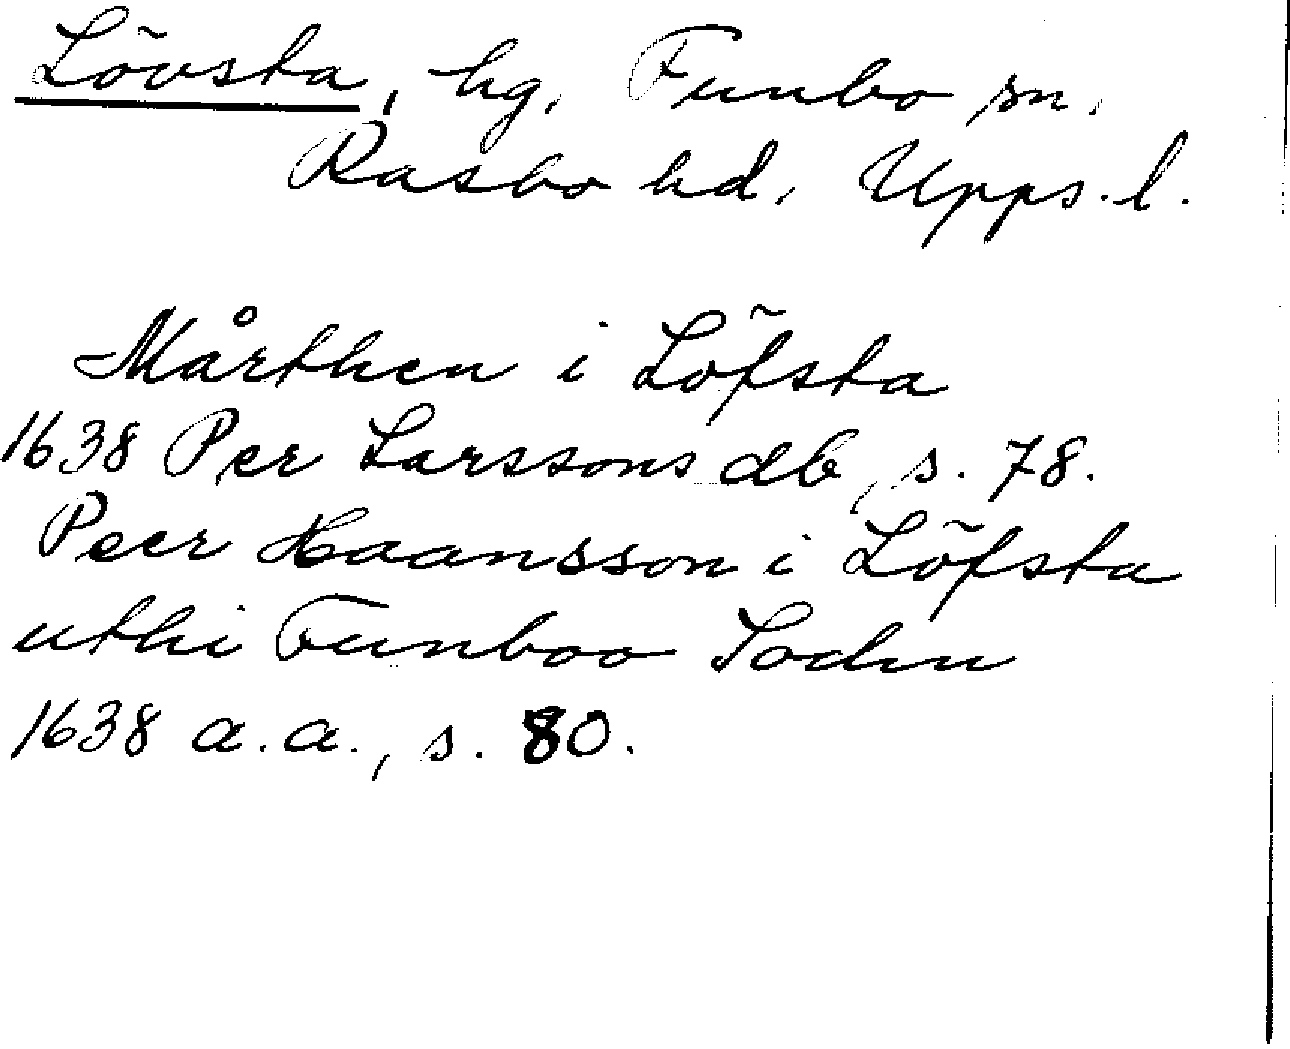 Lövsta, hg, Funbo sn.
Rasbo hd, Upps. l.
Mårthen i Löfsta
1638 Per Larssons db, s. 78.
Peer Haansson i Löfsta
uthi Funboo Sochn
1638 a.a., s. 80.